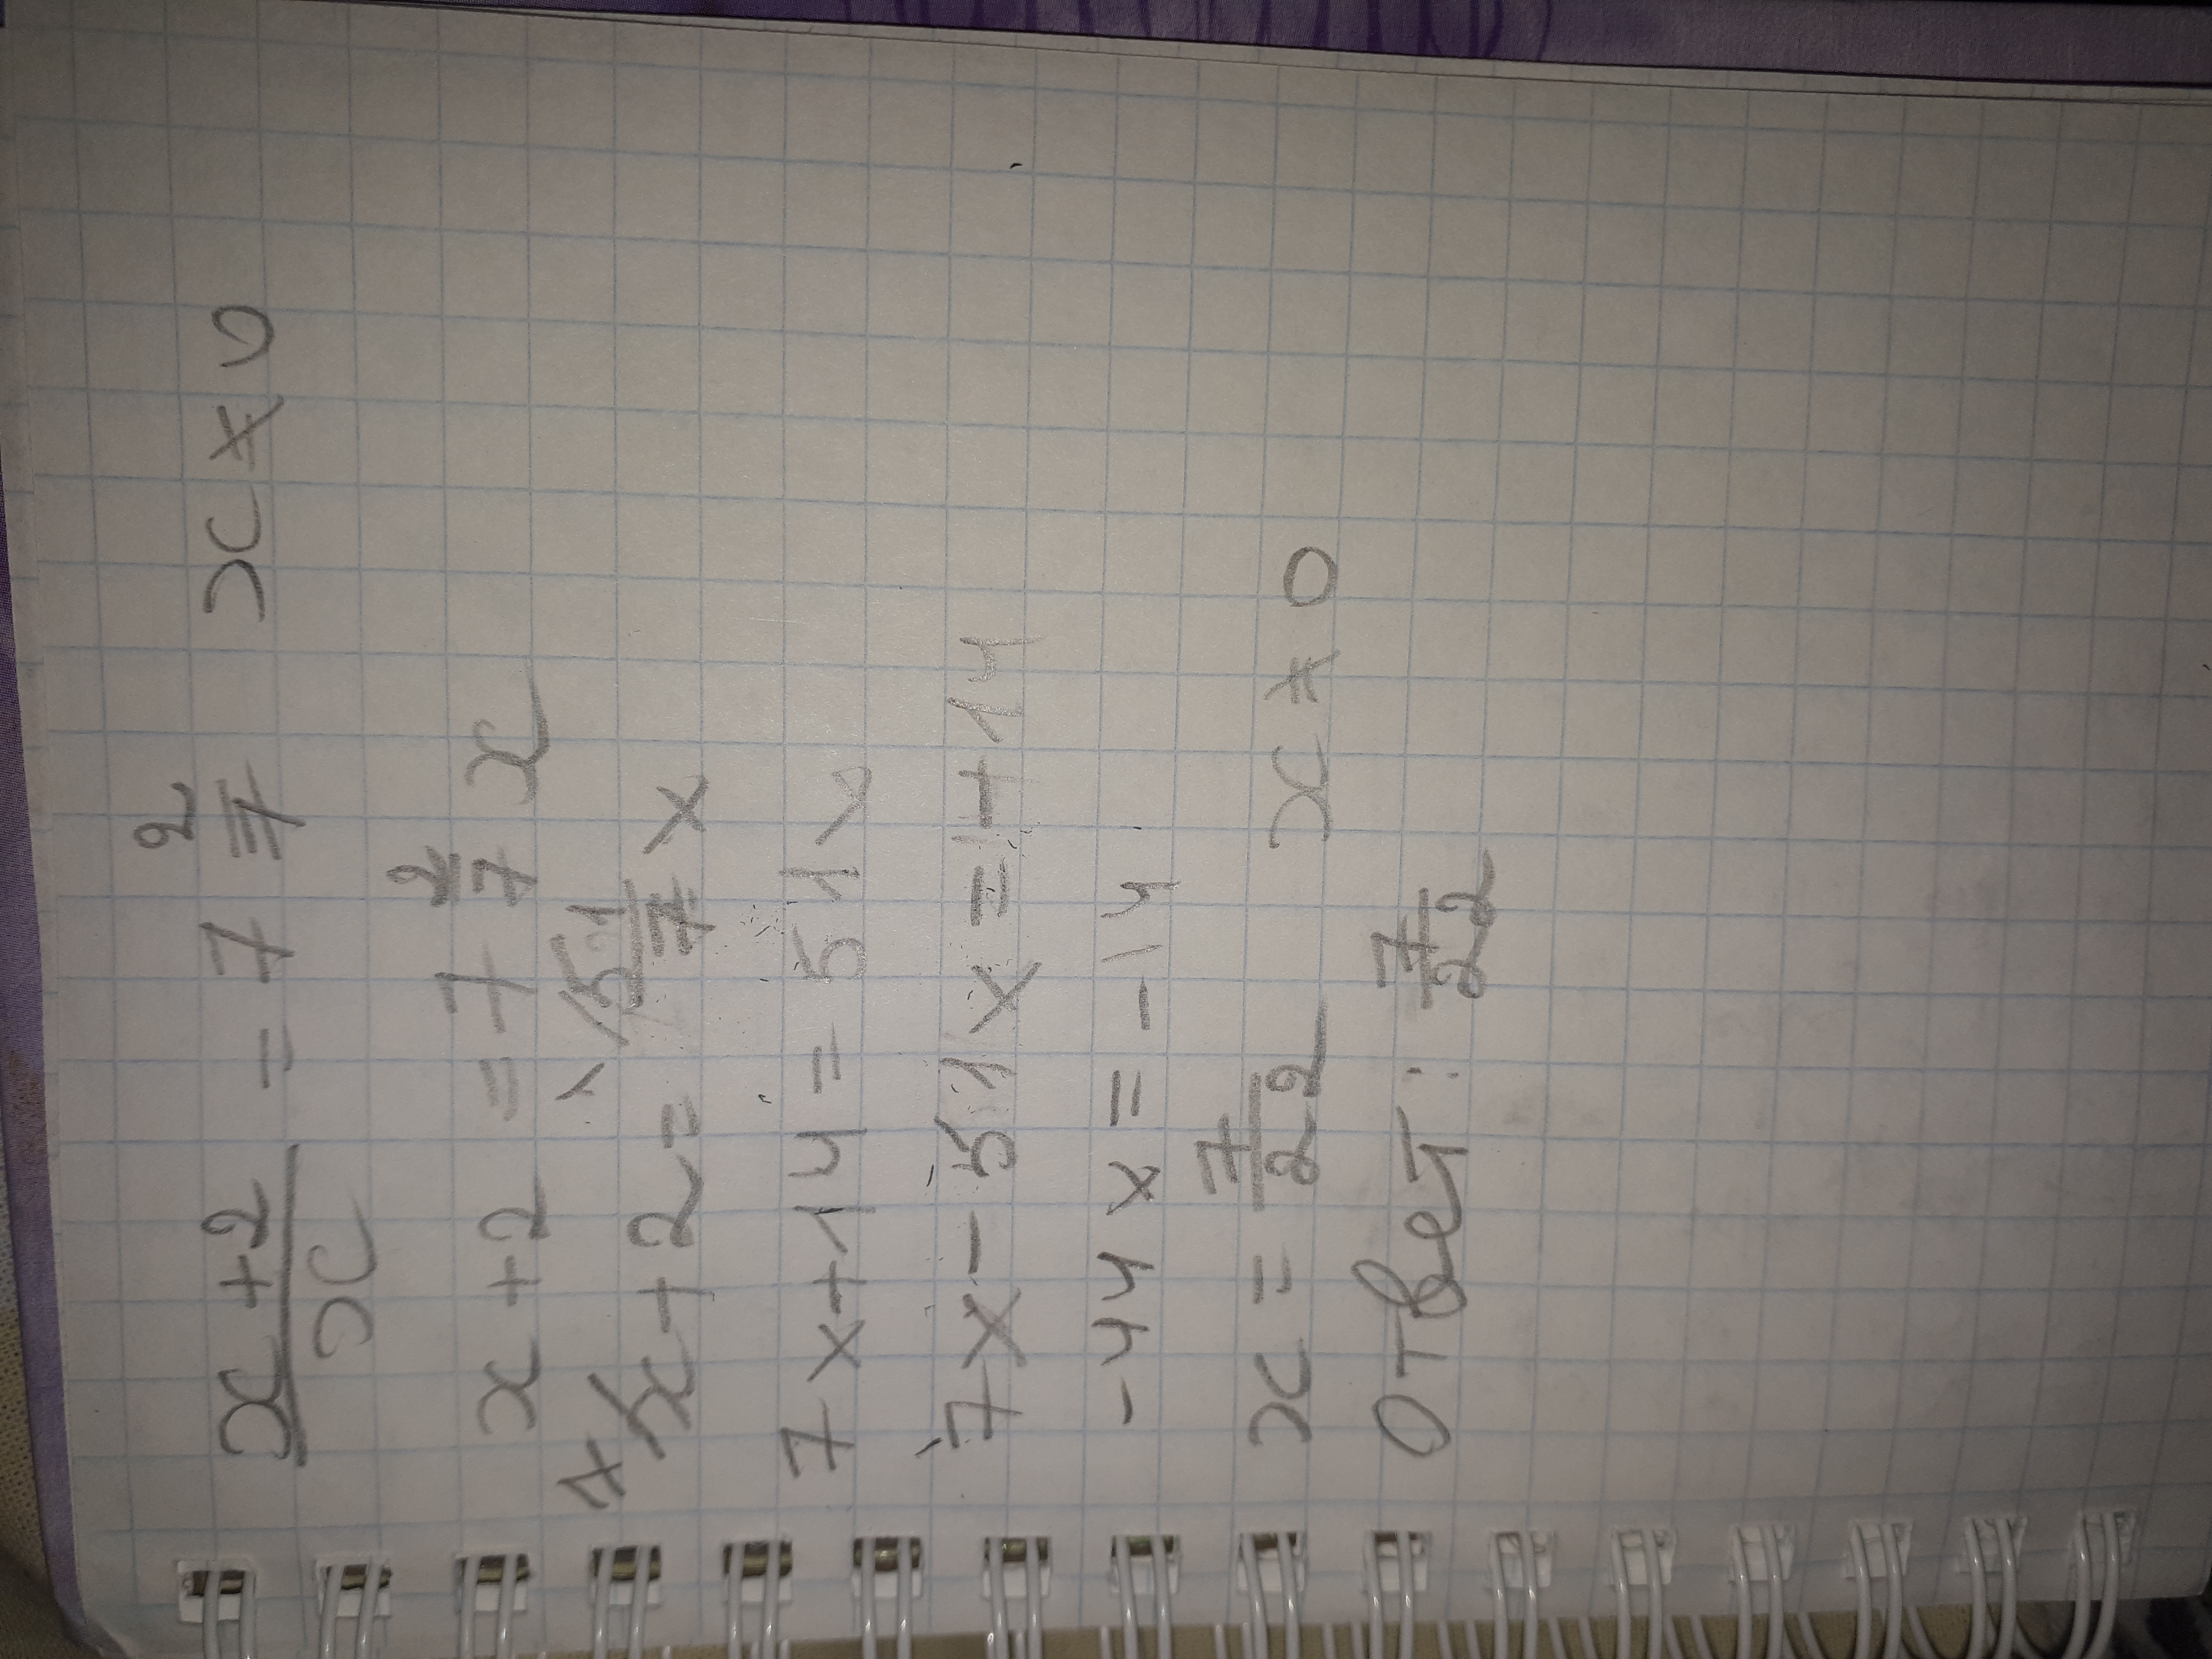 x+2/x = 7 2/7 x ≠ 0
x + 2 = 7 2/7 x
7/x + 2 = 1/51/7 x
7x + 14 = 51x
7x - 51x = -14
-44x = -14
x = 7/22 x ≠ 0
Ответ: 7/22